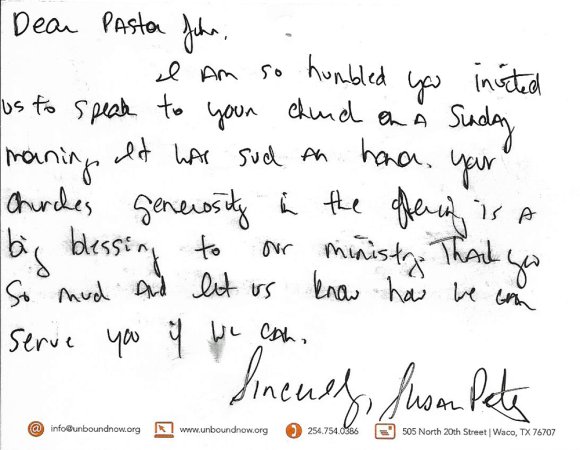 Dear Pastor John,
I am so humbled you invited
us to speak to your church on a Sunday
morning. It was such an honor. Your
churches generosity in the offering is a
big blessing to our ministry. Thank you
so much and let us know how we can
serve you if we can.
Sincerely, Susan Peters
info@unboundnow.org www.unboundnow.org 254.754.0386 505 North 20th Street | Waco, TX 76707